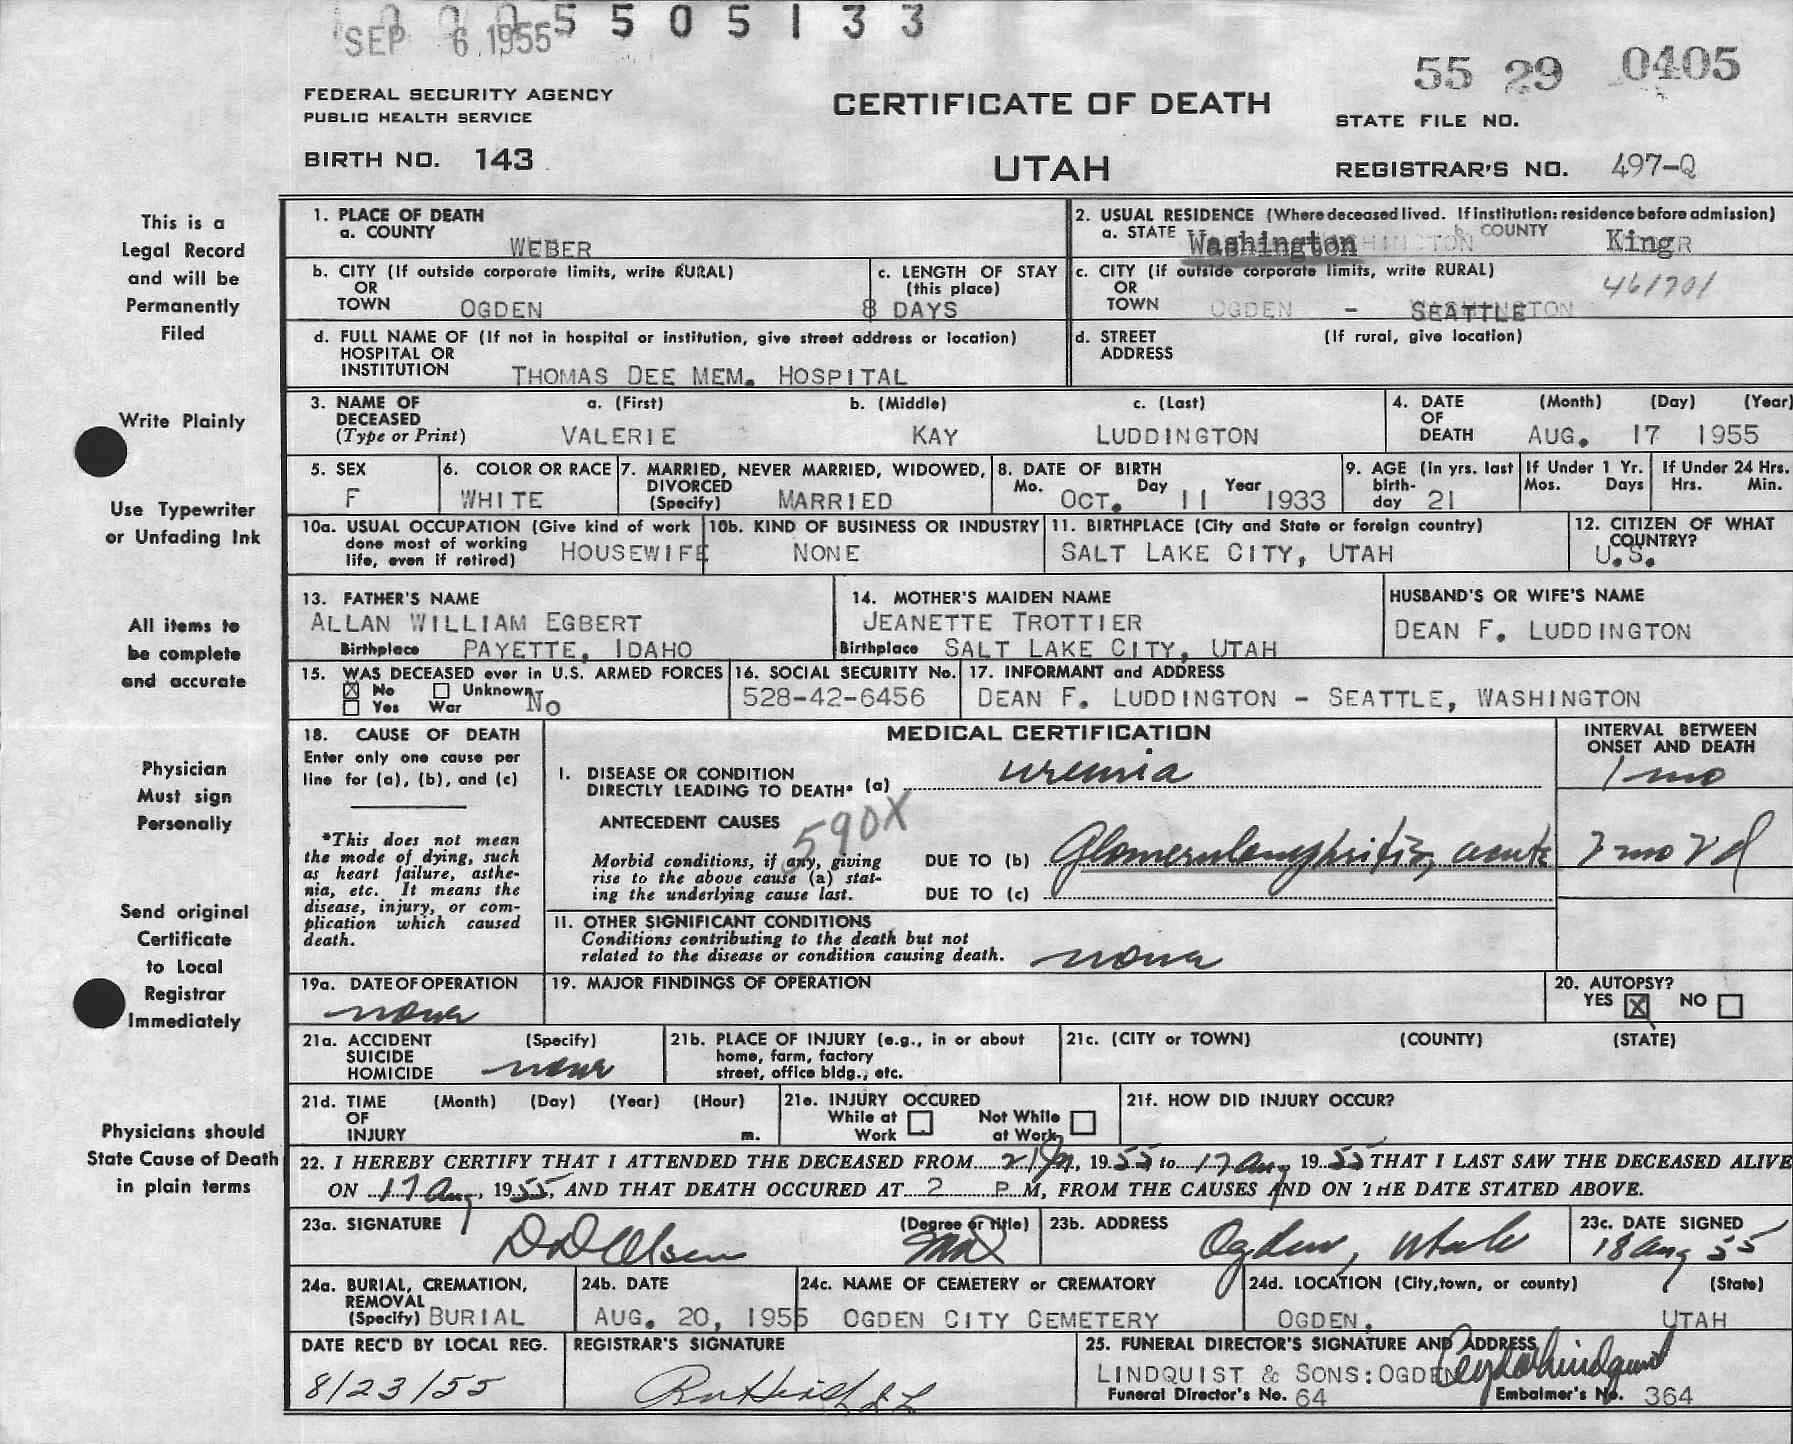 SEP 6 1955
5505133
55 29 0405
FEDERAL SECURITY AGENCY
PUBLIC HEALTH SERVICE
CERTIFICATE OF DEATH
STATE FILE NO.
BIRTH NO. 143
UTAH
REGISTRAR'S NO. 497-Q
This is a
Legal Record
and will be
Permanently
Filed
Write Plainly
Use Typewriter
or Unfading Ink
All items to
be complete
and accurate
Physician
Must sign
Personally
Send original
Certificate
to Local
Registrar
Immediately
Physicians should
State Cause of Death
in plain terms
1. PLACE OF DEATH
a. COUNTY
WEBER
2. USUAL RESIDENCE (Where deceased lived. If institution: residence before admission)
a. STATE Washington b. COUNTY King
b. CITY (If outside corporate limits, write RURAL)
OR
TOWN OGDEN
c. LENGTH OF STAY
(this place)
8 DAYS
c. CITY (if outside corporate limits, write RURAL)
OR
TOWN OGDEN - SEATTLE
461701
d. FULL NAME OF (If not in hospital or institution, give street address or location)
HOSPITAL OR
INSTITUTION THOMAS DEE MEM. HOSPITAL
d. STREET (If rural, give location)
ADDRESS
3. NAME OF a. (First) b. (Middle) c. (Last)
DECEASED
(Type or Print) VALERIE KAY LUDDINGTON
4. DATE (Month) (Day) (Year)
OF
DEATH AUG. 17 1955
5. SEX
F
6. COLOR OR RACE
WHITE
7. MARRIED, NEVER MARRIED, WIDOWED,
DIVORCED
(Specify) MARRIED
8. DATE OF BIRTH
Mo. Day Year
OCT. 11 1933
9. AGE (In yrs. last
birth-
day 21
If Under 1 Yr.
Mos. Days
If Under 24 Hrs.
Hrs. Min.
10a. USUAL OCCUPATION (Give kind of work
done most of working
life, even if retired) HOUSEWIFE
10b. KIND OF BUSINESS OR INDUSTRY
NONE
11. BIRTHPLACE (City and State or foreign country)
SALT LAKE CITY, UTAH
12. CITIZEN OF WHAT
COUNTRY?
U.S.
13. FATHER'S NAME
ALLAN WILLIAM EGBERT
Birthplace PAYETTE, IDAHO
14. MOTHER'S MAIDEN NAME
JEANETTE TROTTIER
Birthplace SALT LAKE CITY, UTAH
HUSBAND'S OR WIFE'S NAME
DEAN F. LUDDINGTON
15. WAS DECEASED ever in U.S. ARMED FORCES
No Unknown
Yes War NO
16. SOCIAL SECURITY No.
528-42-6456
17. INFORMANT and ADDRESS
DEAN F. LUDDINGTON - SEATTLE, WASHINGTON
18. CAUSE OF DEATH
Enter only one cause per
line for (a), (b), and (c)
*This does not mean
the mode of dying, such
as heart failure, asthe-
nia, etc. It means the
disease, injury, or com-
plication which caused
death.
MEDICAL CERTIFICATION
INTERVAL BETWEEN
ONSET AND DEATH
I. DISEASE OR CONDITION
DIRECTLY LEADING TO DEATH* (a) uremia 1 mo
ANTECEDENT CAUSES
590X
Morbid conditions, if any, giving
rise to the above cause (a) stat-
ing the underlying cause last.
DUE TO (b) Glomerulonephritis, acute 2 mo 2 d
DUE TO (c)
II. OTHER SIGNIFICANT CONDITIONS
Conditions contributing to the death but not
related to the disease or condition causing death. none
19a. DATE OF OPERATION
none
19. MAJOR FINDINGS OF OPERATION
20. AUTOPSY?
YES X NO
21a. ACCIDENT (Specify)
SUICIDE
HOMICIDE none
21b. PLACE OF INJURY (e.g., in or about
home, farm, factory
street, office bldg., etc.
21c. (CITY or TOWN) (COUNTY) (STATE)
21d. TIME (Month) (Day) (Year) (Hour)
OF
INJURY m.
21e. INJURY OCCURED
While at Work
Not While at Work
21f. HOW DID INJURY OCCUR?
22. I HEREBY CERTIFY THAT I ATTENDED THE DECEASED FROM 21, 1955 to 17 Aug 1955 THAT I LAST SAW THE DECEASED ALIVE
ON 17 Aug, 1955, AND THAT DEATH OCCURED AT 2 P.M, FROM THE CAUSES AND ON THE DATE STATED ABOVE.
23a. SIGNATURE (Degree or title)
Olsen MD
23b. ADDRESS
Ogden, Utah
23c. DATE SIGNED
18 Aug 55
24a. BURIAL, CREMATION,
REMOVAL
(Specify) BURIAL
24b. DATE
AUG. 20, 1955
24c. NAME OF CEMETERY or CREMATORY
OGDEN CITY CEMETERY
24d. LOCATION (City, town, or county) (State)
OGDEN, UTAH
DATE REC'D BY LOCAL REG.
8/23/55
REGISTRAR'S SIGNATURE
25. FUNERAL DIRECTOR'S SIGNATURE AND ADDRESS
LINDQUIST & SONS: OGDEN
Funeral Director's No. 64 Embalmer's No. 364